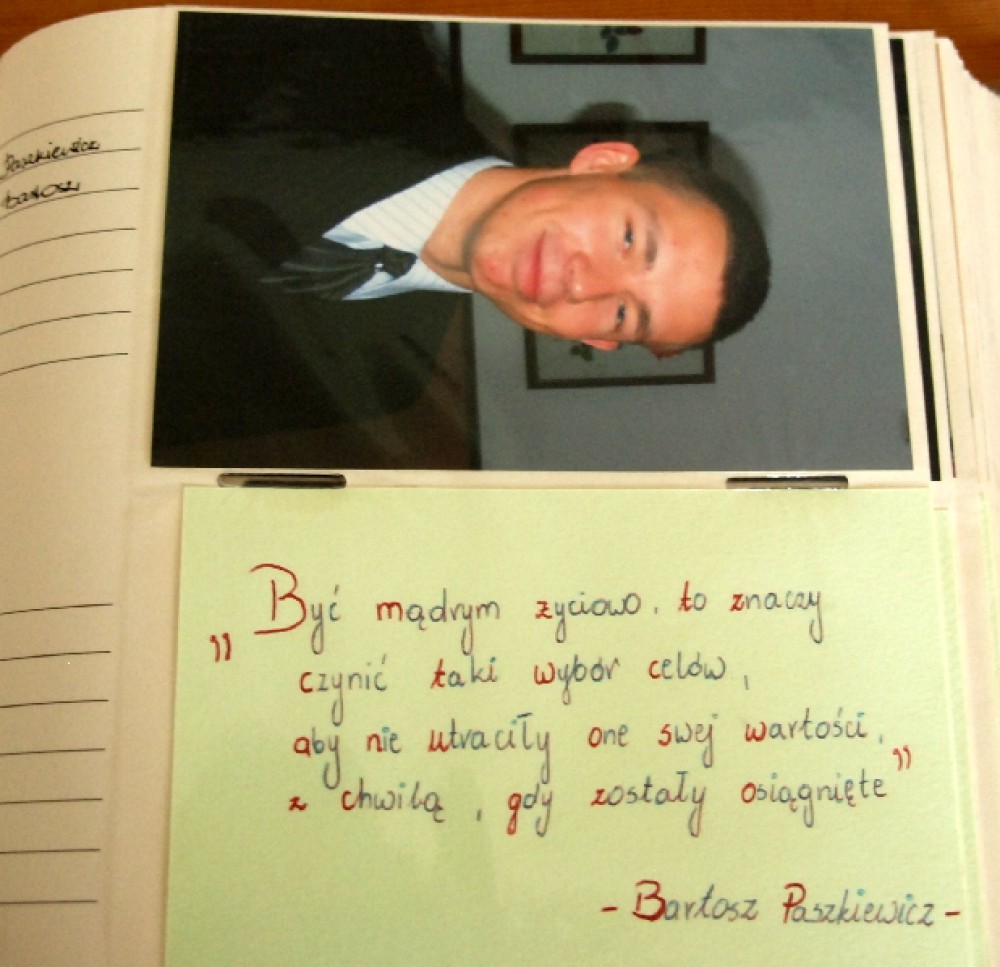 Paszkiewicz
Bartosz
„Być mądrym życiowo, to znaczy
czynić taki wybór celów,
aby nie utraciły one swej wartości,
z chwilą, gdy zostały osiągnięte”
- Bartosz Paszkiewicz -